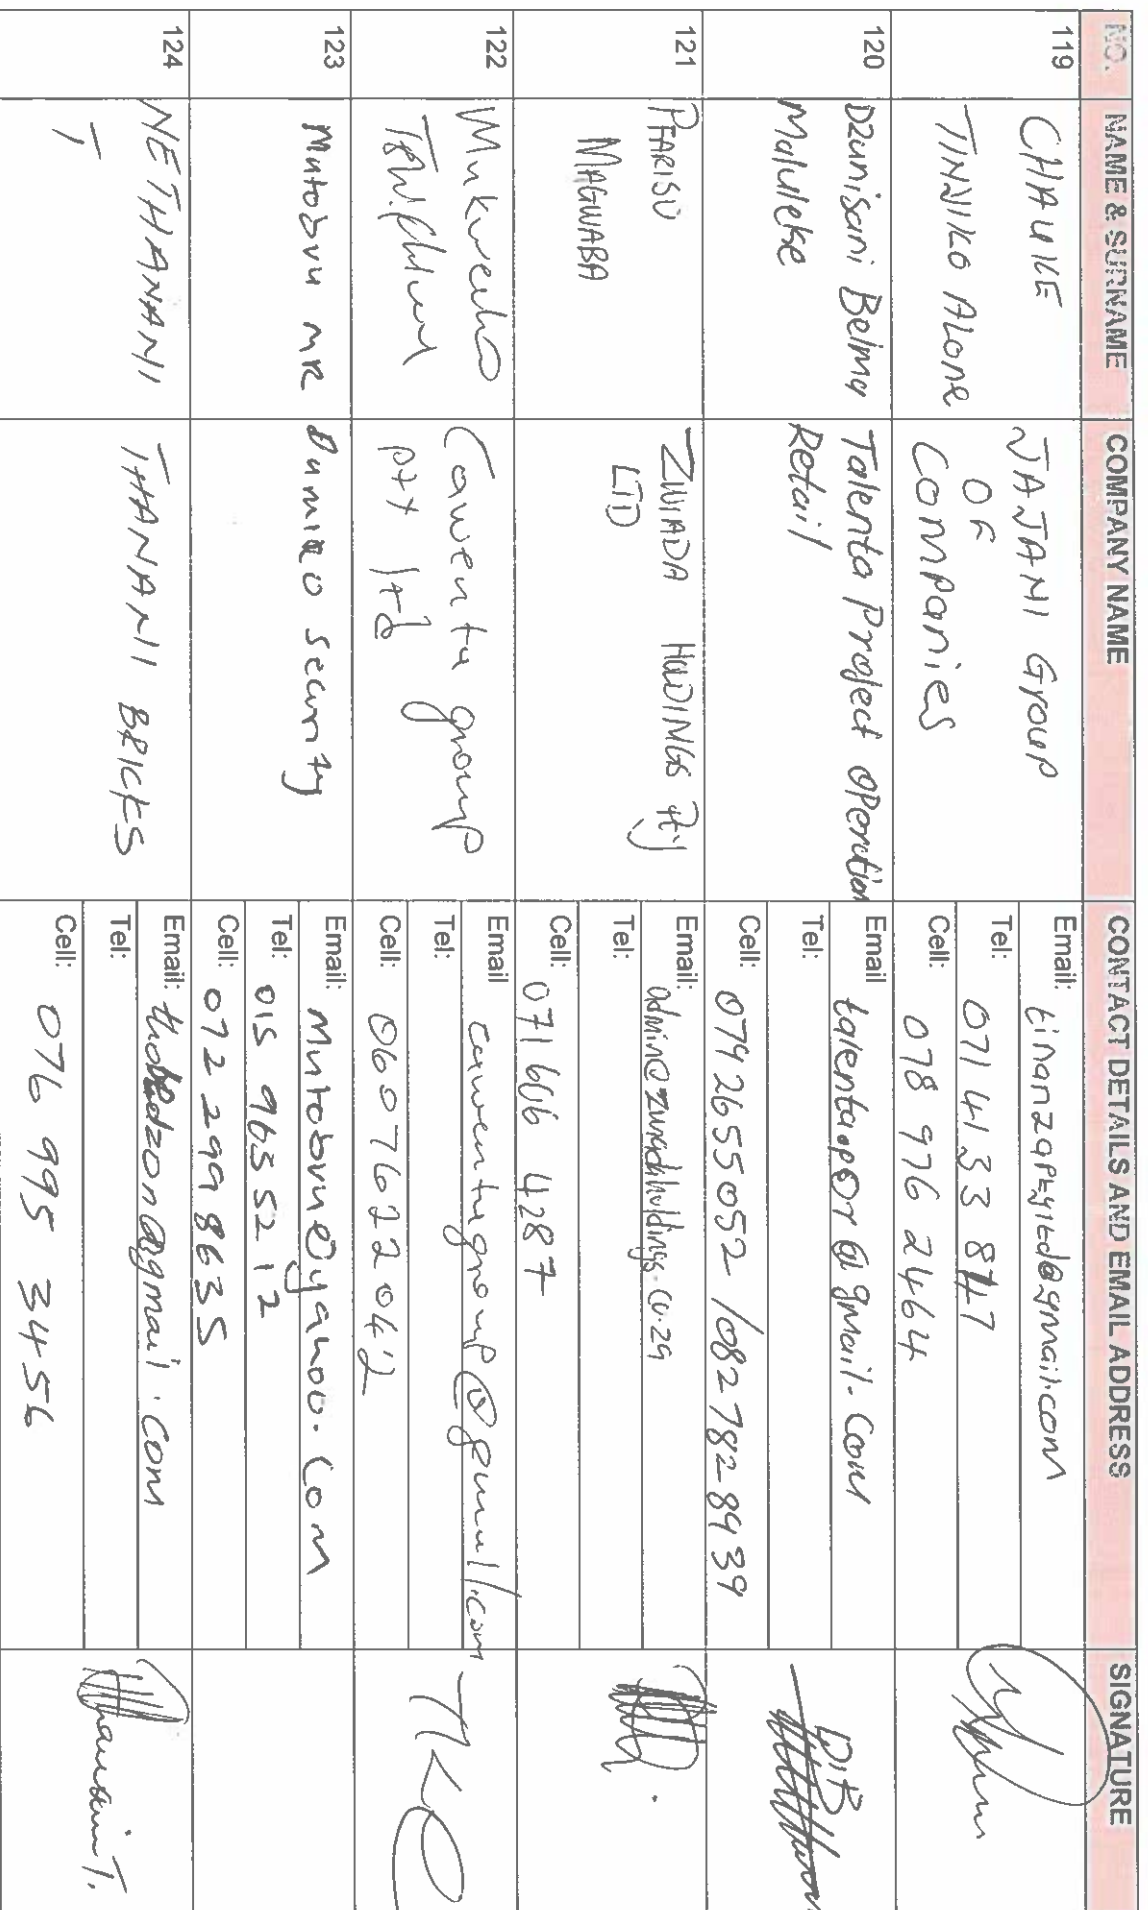 NO. NAME & SURNAME COMPANY NAME CONTACT DETAILS AND EMAIL ADDRESS SIGNATURE
119
CHAUKE
TINYIKO ALONE
JAJANI Group
OF
Companies
Email: tinanzaptyltd@gmail.com
Tel: 071 4133 847
Cell: 078 976 2464
120
Dzunisani Belma
Maluleke
Talenta Project Operation
Retail
Email talenta.por@gmail.com
Tel:
Cell: 079 2655052 / 082 782 8939
D.B
121
PFARISO
MAGWABA
ZWIADA HOLDINGS Pty
LTD
Email:
Tel:
Cell: 071 606 4287
122
Mukwevho
Cawentu group
pty ltd
Email cawentugroup@gmail.com
Tel:
Cell: 060 762 2042
123
Mutobvu MR
Dumiko security
Email: Mutobvu@yahoo.com
Tel: 015 963 5212
Cell: 072 299 8635
124
NETHANANI
T
THANANII BRICKS
Email:
Tel:
Cell: 076 995 3456